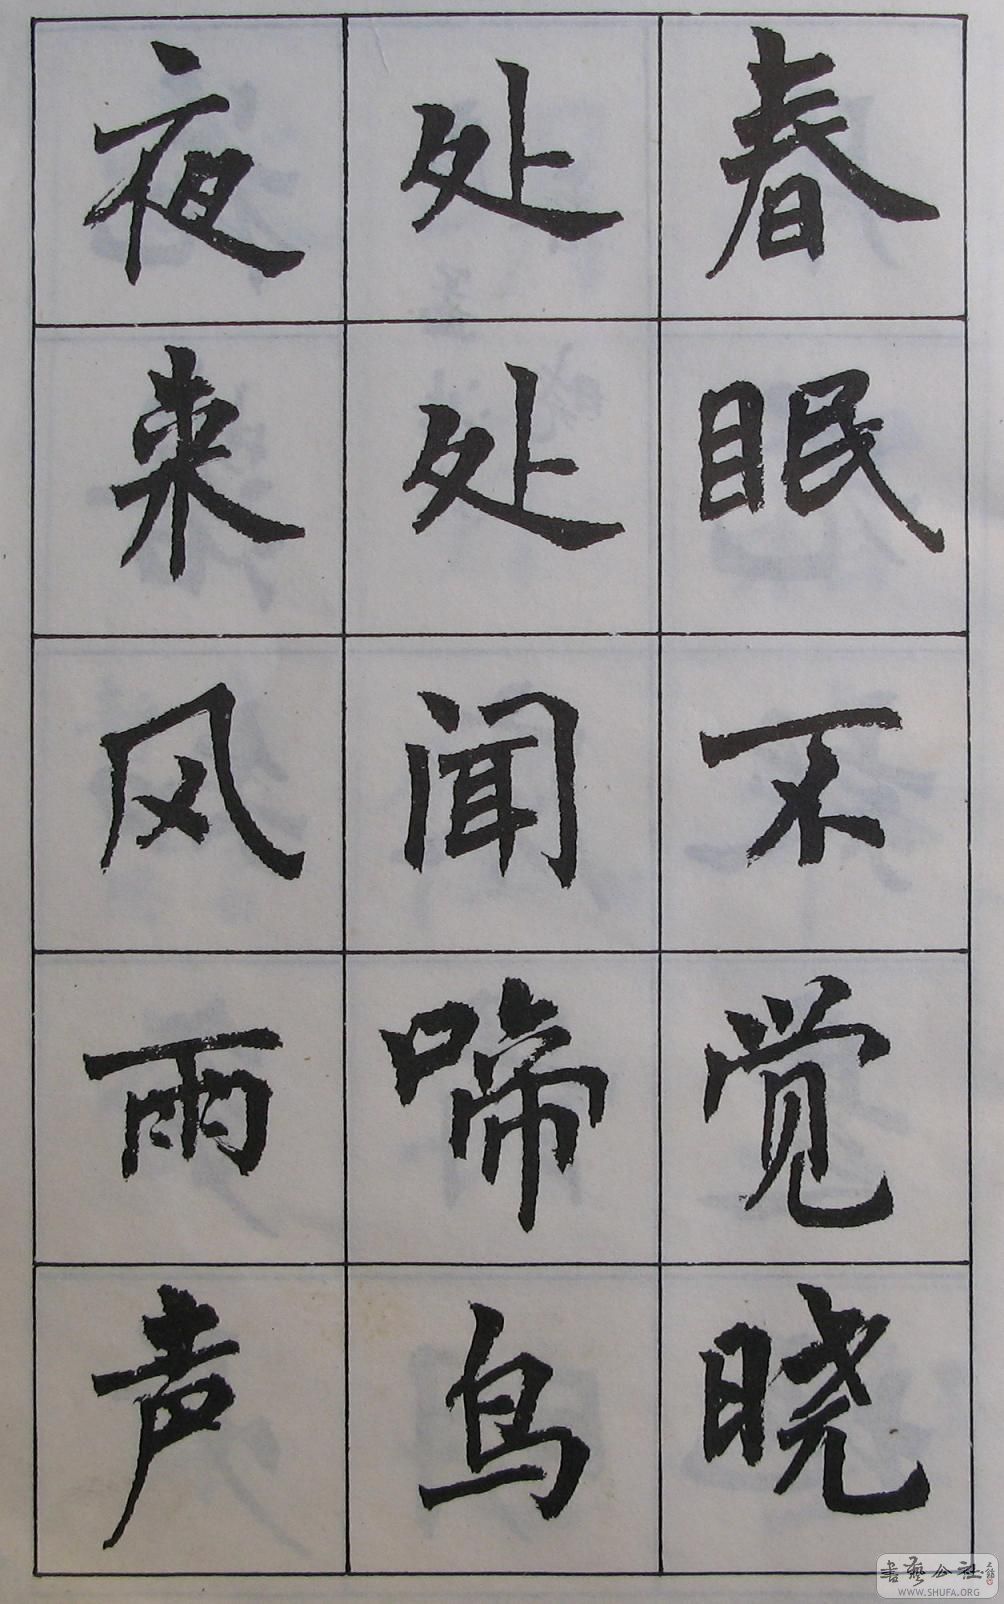 春眠不觉晓
处处闻啼鸟
夜来风雨声
書藝公社
WWW.SHUFA.ORG